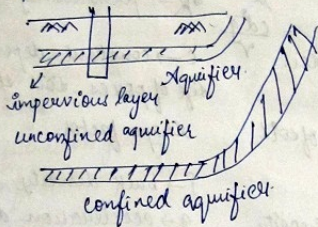 Aquifier.
impervious layer
unconfined aquifier
confined aquifier.